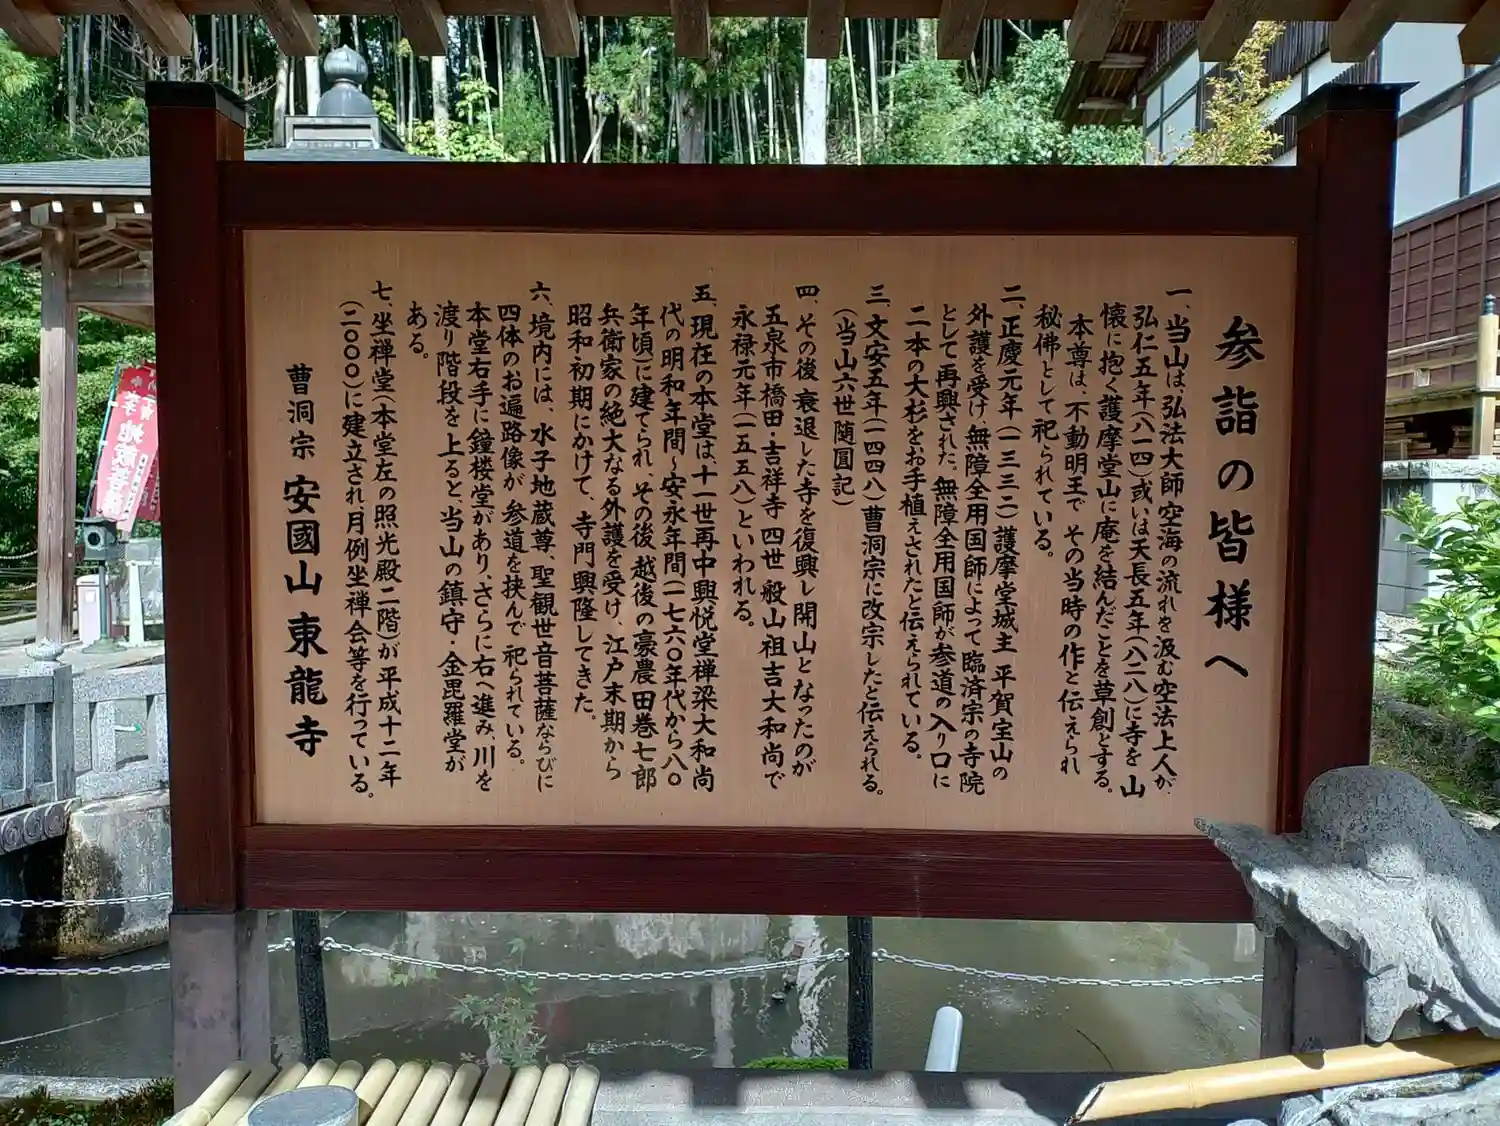 参詣の皆様へ
一、当山は、弘法大師空海の流れを汲む空法上人が、
弘仁五年(八一四)或いは天長五年(八二八)に寺を山
懐に抱く護摩堂山に庵を結んだことを草創とする。
本尊は、不動明王で その当時の作と伝えられ
秘佛として祀られている。
二、正慶元年(一三三二)護摩堂城主 平賀宝山の
外護を受け、無障全用国師によって臨済宗の寺院
として再興された。無障全用国師が参道の入り口に
二本の大杉をお手植えされたと伝えられている。
三、文安五年(一四四八)曹洞宗に改宗したと伝えられる。
(当山六世随圓記)
四、その後衰退した寺を復興し開山となったのが
五泉市橋田・吉祥寺四世 般山祖吉大和尚で
永禄元年(一五五八)といわれる。
五、現在の本堂は、十一世再中興悦堂禅梁大和尚
代の明和年間~安永年間(一七六〇年代から八〇
年頃)に建てられ、その後越後の豪農田巻七郎
兵衛家の絶大なる外護を受け、江戸末期から
昭和初期にかけて、寺門興隆してきた。
六、境内には、水子地蔵尊、聖観世音菩薩ならびに
四体のお遍路像が参道を挟んで祀られている。
本堂右手に鐘楼堂があり、さらに右へ進み、川を
渡り階段を上ると、当山の鎮守・金毘羅堂が
ある。
七、坐禅堂(本堂左の照光殿二階)が平成十二年
(二〇〇〇)に建立され、月例坐禅会等を行っている。
曹洞宗 安國山東龍寺